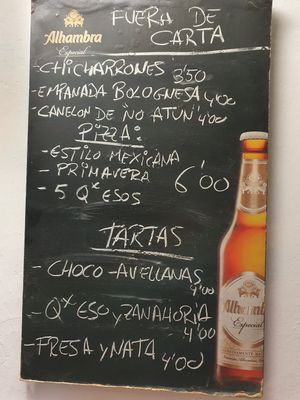 Alhambra
Especial
FUERA DE
CARTA
-CHICHARRONES 3'50
-EMPANADA BOLOGNESA 4'00
-CANELON DE "NO ATUN" 4'00
PIZZA:
-ESTILO MEXICANA
-PRIMAVERA
- 5 QˣESOS
6'00
TARTAS
-CHOCO-AVELLANAS
4'00
-QˣESO y ZANAHORIA
4'00
-FRESA y NATA 4'00
Alhambra
Especial